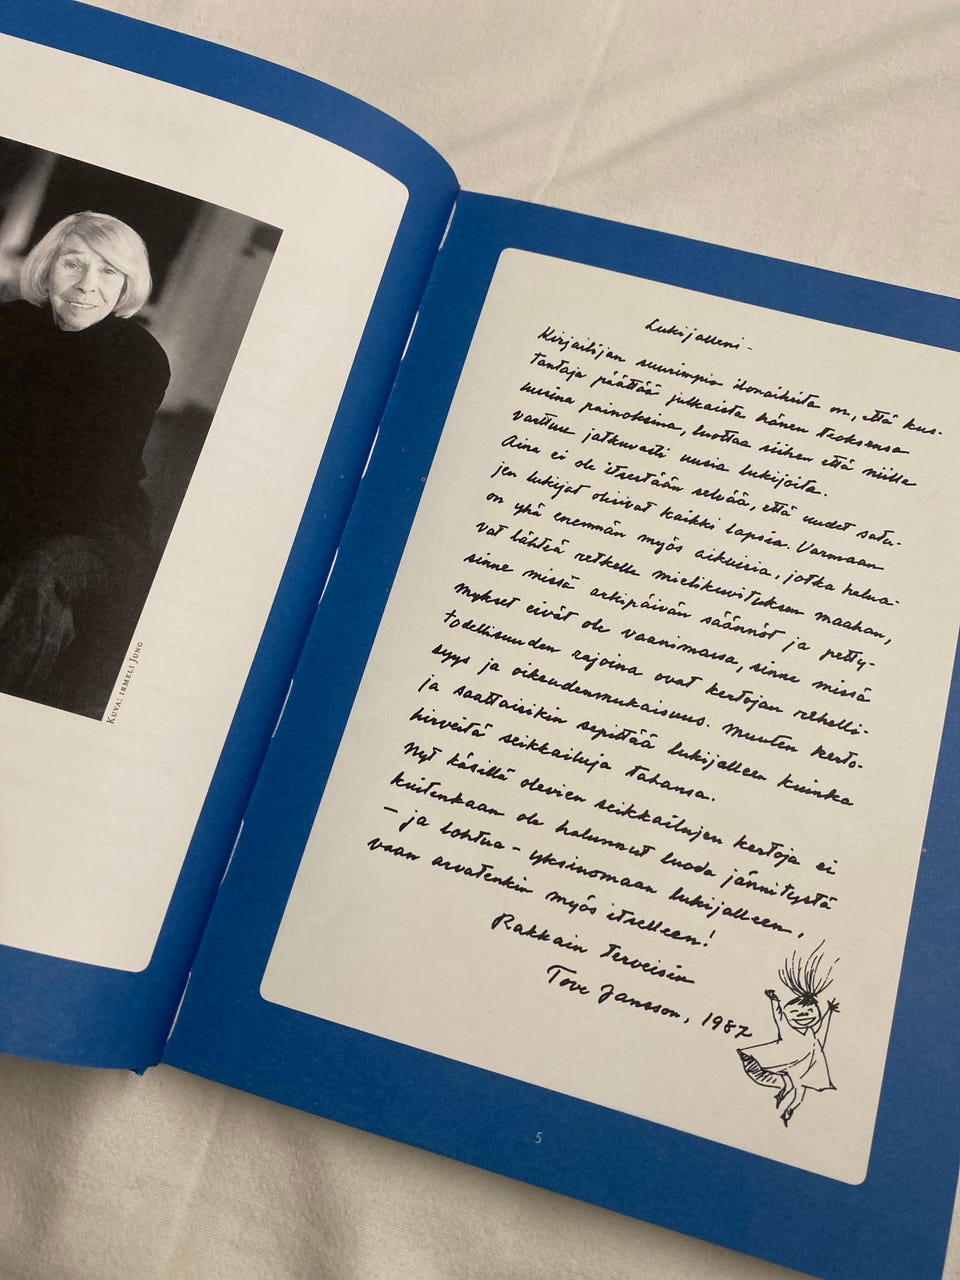 KUVA: IRMELI JUNG
Lukijalleni -
Kirjailijan suurimpia ilonaiheita on, että kus-
tantaja päättää julkaista hänen teoksensa
uusina painoksina, luottaa siihen että niille
varttuu jatkuvasti uusia lukijoita.
Aina ei ole itsestään selvää, että uudet satu-
jen lukijat olisivat kaikki lapsia. Varmaan
on yhä enemmän myös aikuisia, jotka halua-
vat lähteä retkelle mielikuvituksen maahan,
sinne missä arkipäivän säännöt ja petty-
mykset eivät ole vaanimassa, sinne missä
todellisuuden rajoina ovat kertojan rehelli-
syys ja oikeudenmukaisuus. Muuten kerto-
ja saattaisikin sepittää lukijalleen kuinka
hirveitä seikkailuja tahansa.
Nyt käsillä olevien seikkailujen kertoja ei
kuitenkaan ole halunnut luoda jännitystä
- ja lohtua - yksinomaan lukijalleen,
vaan arvatenkin myös itselleen!
Rakkain terveisin
Tove Jansson, 1987
5